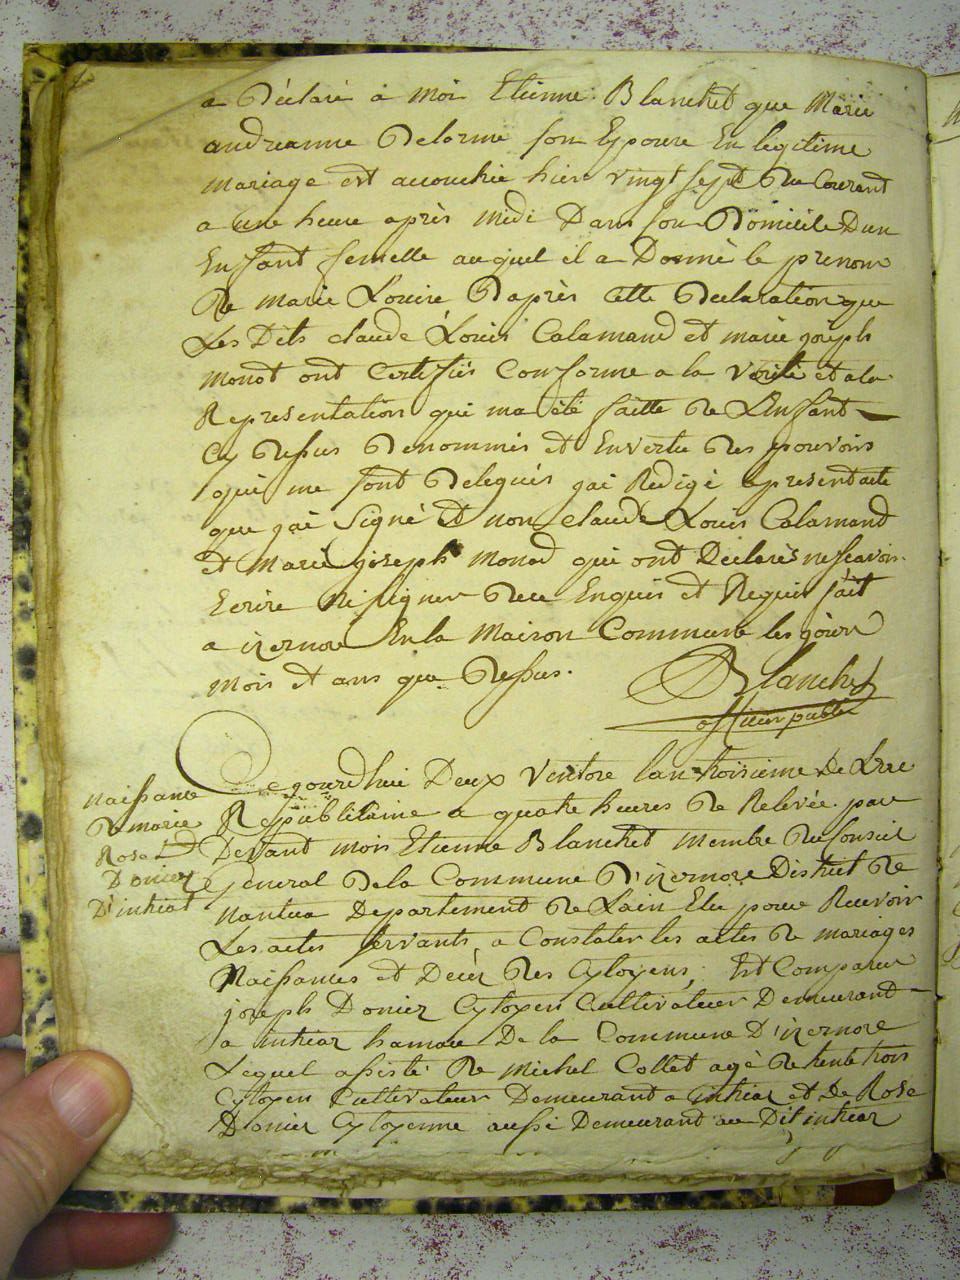 a Déclaré a moi Etienne Blanchet que Marie
andreanne Delorme son Epouse En legitime
mariage est accouchée hier vingt sept du Courant
a une heure après midi Dans son Domicile Dun
Enfant femelle auquel il a Donné le prenom
De marie Louise D'après cette Declaration que
Les Dits claude Louis Calamand et marie joseph
monot ont Certifiés Conforme a la verité et a la
Representation qui ma été faitte de L'Enfant
Cy dessus denommés et En vertu des pouvoirs
qui me sont Delegués jai Redigé le present acte
que jai Signé et non claude Louis Calamand
et marie joseph monod qui ont Déclarés ne scavoir
Ecrire ni signer de ce Enquis et Requis fait
a izernore En la maison Commune les jour
mois et ans que dessus.
Blanchet
officier public
naissance
de marie
Rose
Donier
D'intriat
Cejourdhui Deux Ventose lan troisieme de L'ere
Republicaine a quatre heures de Relevée par
Devant moi Etienne Blanchet membre du Conseil
General de la Commune D'izernore District de
nantua Departement de Lain Elu pour Recevoir
Les actes servants a Constater les actes de mariages
Naissances et Décéz des Cytoyens, Est Comparu
joseph Donier Cytoyen Cultivateur Demeurant
a intriaz hamau De la Commune D'izernore
Lequel assisté de michel Collet agé de trente trois
Cytoyen Cultivateur Demeurant a intriaz et de Rose
Donier Cytoyenne aussi Demeurant au Dit intriaz